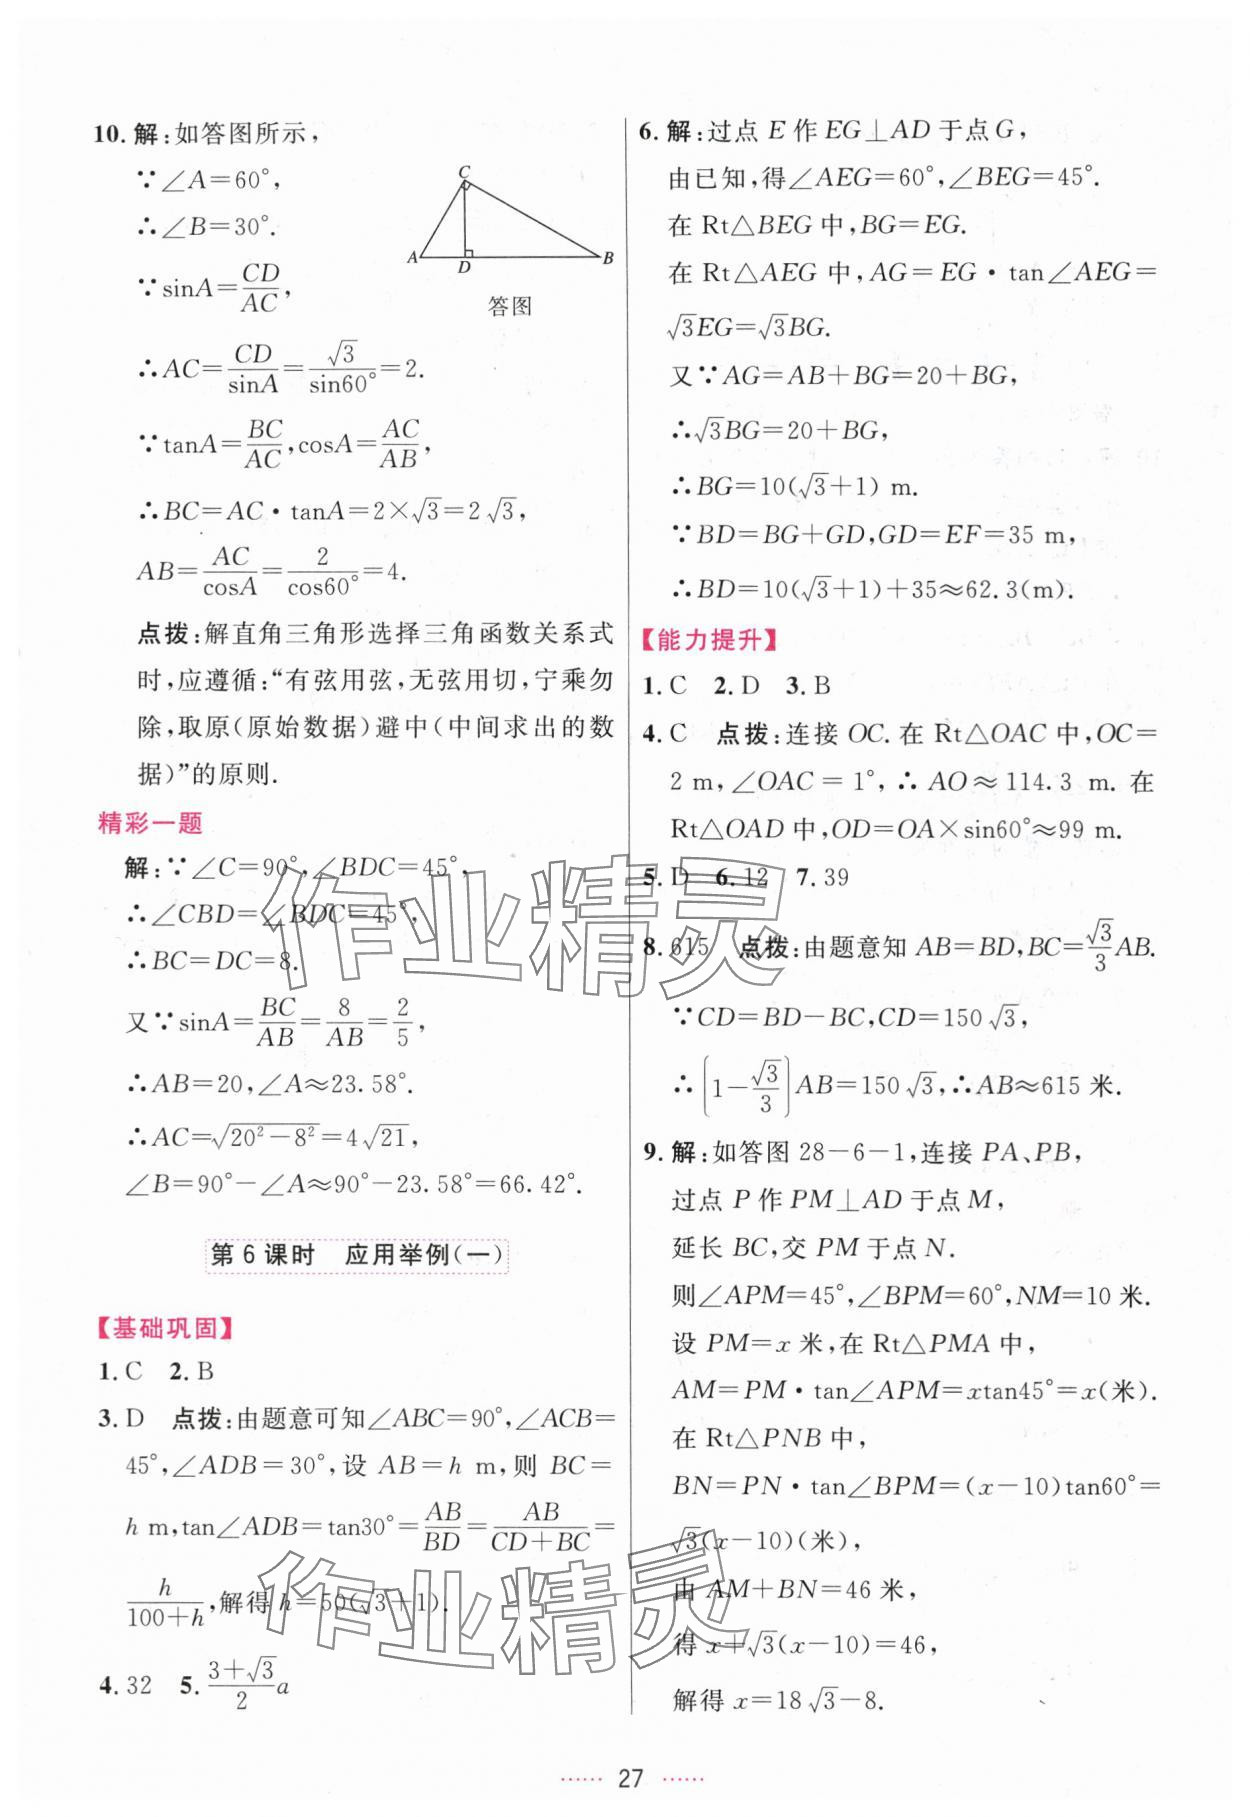 10. 解:如答图所示,
∵∠A=60°,
∴∠B=30°.
∵sinA=CD/AC,
C
A
D
B
答图
∴AC=CD/sinA=√3/sin60°=2.
∵tanA=BC/AC,cosA=AC/AB,
∴BC=AC·tanA=2×√3=2√3,
AB=AC/cosA=2/cos60°=4.
点拨:解直角三角形选择三角函数关系式
时,应遵循:“有弦用弦,无弦用切,宁乘勿
除,取原(原始数据)避中(中间求出的数
据)”的原则.
精彩一题
解:∵∠C=90°,∠BDC=45°,
∴∠CBD=∠BDC=45°,
∴BC=DC=8.
又∵sinA=BC/AB=8/AB=2/5,
∴AB=20,∠A≈23.58°.
∴AC=√(20²-8²)=4√21,
∠B=90°-∠A≈90°-23.58°=66.42°.
第6课时 应用举例(一)
【基础巩固】
1. C 2. B
3. D 点拨:由题意可知∠ABC=90°,∠ACB=
45°,∠ADB=30°,设 AB=h m,则 BC=
h m,tan∠ADB=tan30°=AB/BD=AB/(CD+BC)=
h/(100+h),解得 h=50(√3+1).
4. 32 5. (3+√3)/2 a
6. 解:过点 E 作 EG⊥AD 于点 G,
由已知,得∠AEG=60°,∠BEG=45°.
在 Rt△BEG 中,BG=EG.
在 Rt△AEG 中,AG=EG·tan∠AEG=
√3EG=√3BG.
又∵AG=AB+BG=20+BG,
∴√3BG=20+BG,
∴BG=10(√3+1) m.
∵BD=BG+GD,GD=EF=35 m,
∴BD=10(√3+1)+35≈62.3(m).
【能力提升】
1. C 2. D 3. B
4. C 点拨:连接 OC. 在 Rt△OAC 中,OC=
2 m,∠OAC=1°,∴AO≈114.3 m. 在
Rt△OAD 中,OD=OA×sin60°≈99 m.
5. D 6. 12 7. 39
8. 615 点拨:由题意知 AB=BD,BC=√3/3 AB.
∵CD=BD-BC,CD=150√3,
∴(1-√3/3)AB=150√3,∴AB≈615 米.
9. 解:如答图 28-6-1,连接 PA、PB,
过点 P 作 PM⊥AD 于点 M,
延长 BC,交 PM 于点 N.
则∠APM=45°,∠BPM=60°,NM=10 米.
设 PM=x 米,在 Rt△PMA 中,
AM=PM·tan∠APM=xtan45°=x(米).
在 Rt△PNB 中,
BN=PN·tan∠BPM=(x-10)tan60°=
√3(x-10)(米),
由 AM+BN=46 米,
得 x+√3(x-10)=46,
解得 x=18√3-8.
作业精灵
作业精灵
······ 27 ······